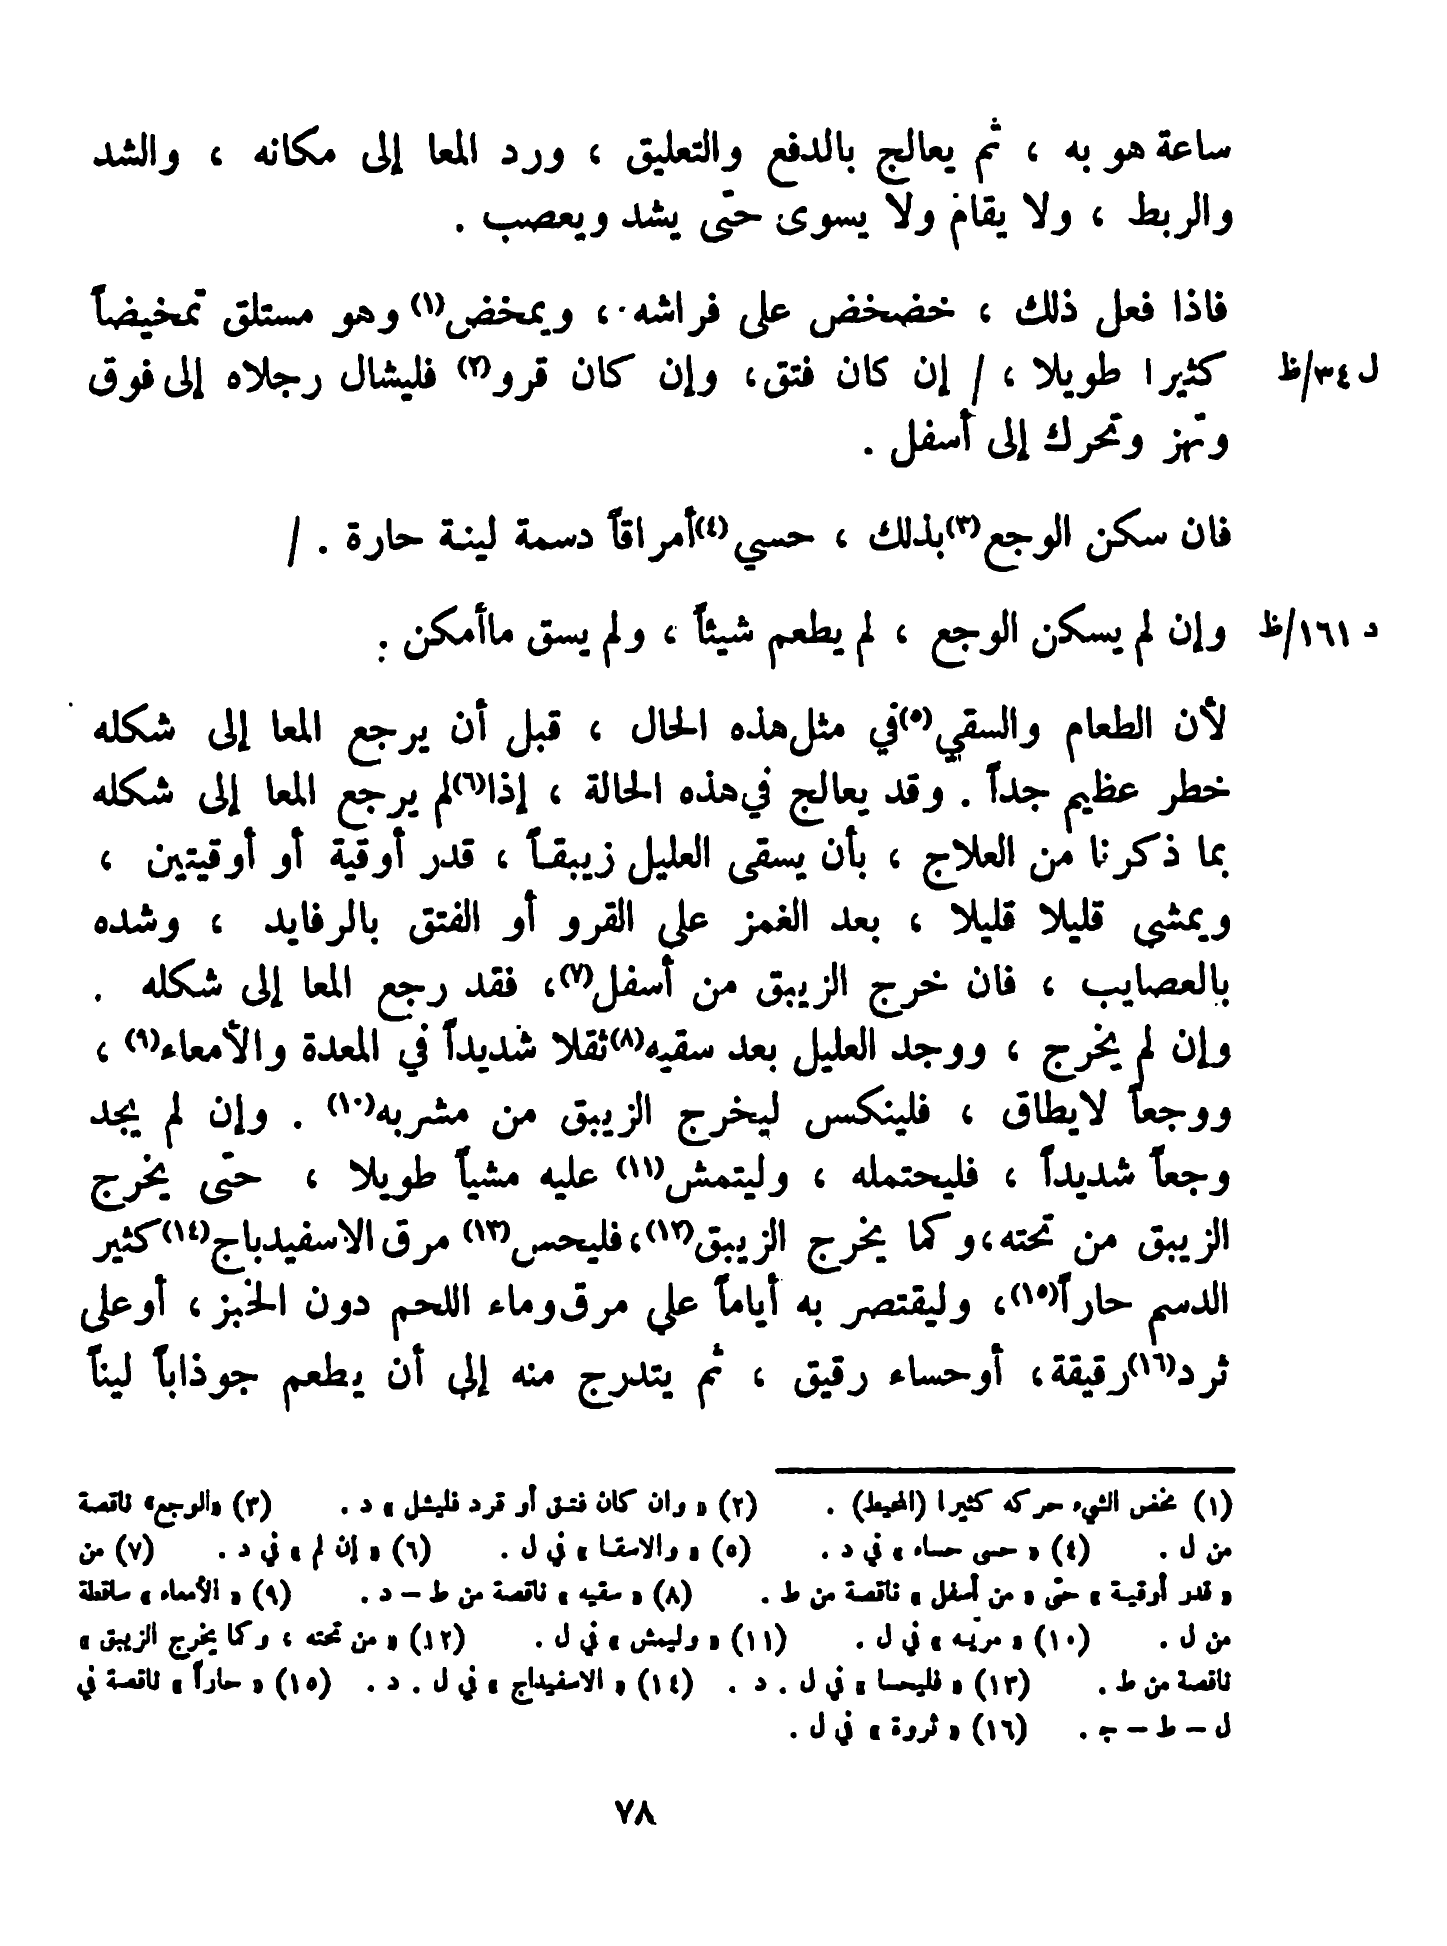 ساعة هو به ، ثم يعالج بالدفع والتعليق ، ورد المعا إلى مكانه ، والشد
والربط ، ولا يقام ولا يسوى حتى يشد ويعصب .
فاذا فعل ذلك ، خضخض على فراشه ، ويمخض(١) وهو مستلق تمخيضاً
كثيرا طويلا ، / إن كان فتق، وإن كان قرو(٢) فليشال رجلاه إلى فوق ل ٣٤/ظ
وتهز وتحرك إلى أسفل .
فان سكن الوجع(٣) بذلك ، حسي(٤) أمراقاً دسمة لينة حارة . /
وإن لم يسكن الوجع ، لم يطعم شيئاً ، ولم يسق ماأمكن : د ١٦١/ظ
لأن الطعام والسقي(٥) في مثل هذه الحال ، قبل أن يرجع المعا إلى شكله
خطر عظيم جداً . وقد يعالج في هذه الحالة ، إذا(٦) لم يرجع المعا إلى شكله
بما ذكرنا من العلاج ، بأن يسقى العليل زيبقاً ، قدر أوقية أو أوقيتين ،
ويمشي قليلا قليلا ، بعد الغمز على القرو أو الفتق بالرفايد ، وشده
بالعصايب ، فان خرج الزيبق من أسفل(٧)، فقد رجع المعا إلى شكله .
وإن لم يخرج ، ووجد العليل بعد سقيه(٨) ثقلا شديداً في المعدة والأمعاء(٩) ،
ووجعاً لايطاق ، فلينكس ليخرج الزيبق من مشربه(١٠) . وإن لم يجد
وجعاً شديداً ، فليحتمله ، وليتمش(١١) عليه مشياً طويلا ، حتى يخرج
الزيبق من تحته، وكما يخرج الزيبق(١٢)، فليحس(١٣) مرق الاسفيدباج(١٤) كثير
الدسم حاراً(١٥)، وليقتصر به أياماً على مرق وماء اللحم دون الخبز ، أوعلى
ثرد(١٦) رقيقة، أوحساء رقيق ، ثم يتدرج منه إلى أن يطعم جوذاباً ليناً
(١) مخض الشيء حركه كثيرا (المحيط) . (٢) « وان كان فتق أو قرد فليشل » د . (٣) «الوجع» ناقصة
من ل . (٤) « حسى حساء » في د . (٥) « والاسقا » في ل . (٦) « إن لم » في د . (٧) من
« قدر أوقية » حتى « من أسفل » ناقصة من ط . (٨) « سقيه » ناقصة من ط – د . (٩) « الأمعاء » ساقطة
من ل . (١٠) « مريّه » في ل . (١١) « وليمش » في ل . (١٢) « من تحته ، وكما يخرج الزيبق »
ناقصة من ط . (١٣) « فليحسا » في ل . د . (١٤) « الاسفيداج » في ل . د . (١٥) « حاراً » ناقصة في
ل – ط – ج . (١٦) « ثروة » في ل .
٧٨